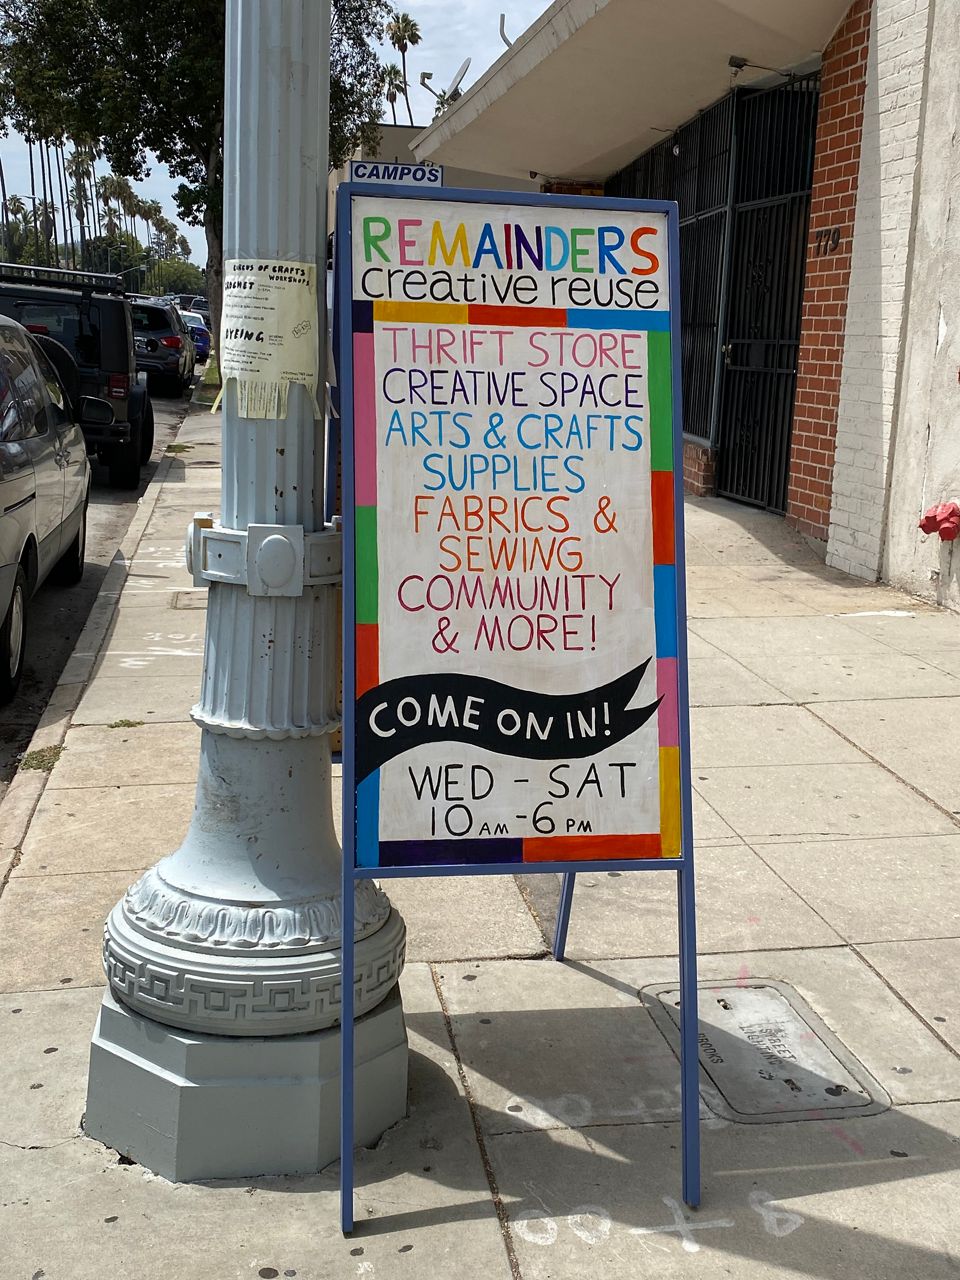 CAMPO'S
REMAINDERS
creative reuse
THRIFT STORE
CREATIVE SPACE
ARTS & CRAFTS
SUPPLIES
FABRICS &
SEWING
COMMUNITY
& MORE!
COME ON IN!
WED - SAT
10 AM - 6 PM
CIRCUS OF CRAFTS
WORKSHOPS
CROCHET
DYEING
779
STREET
LIGHTING
BROOKS